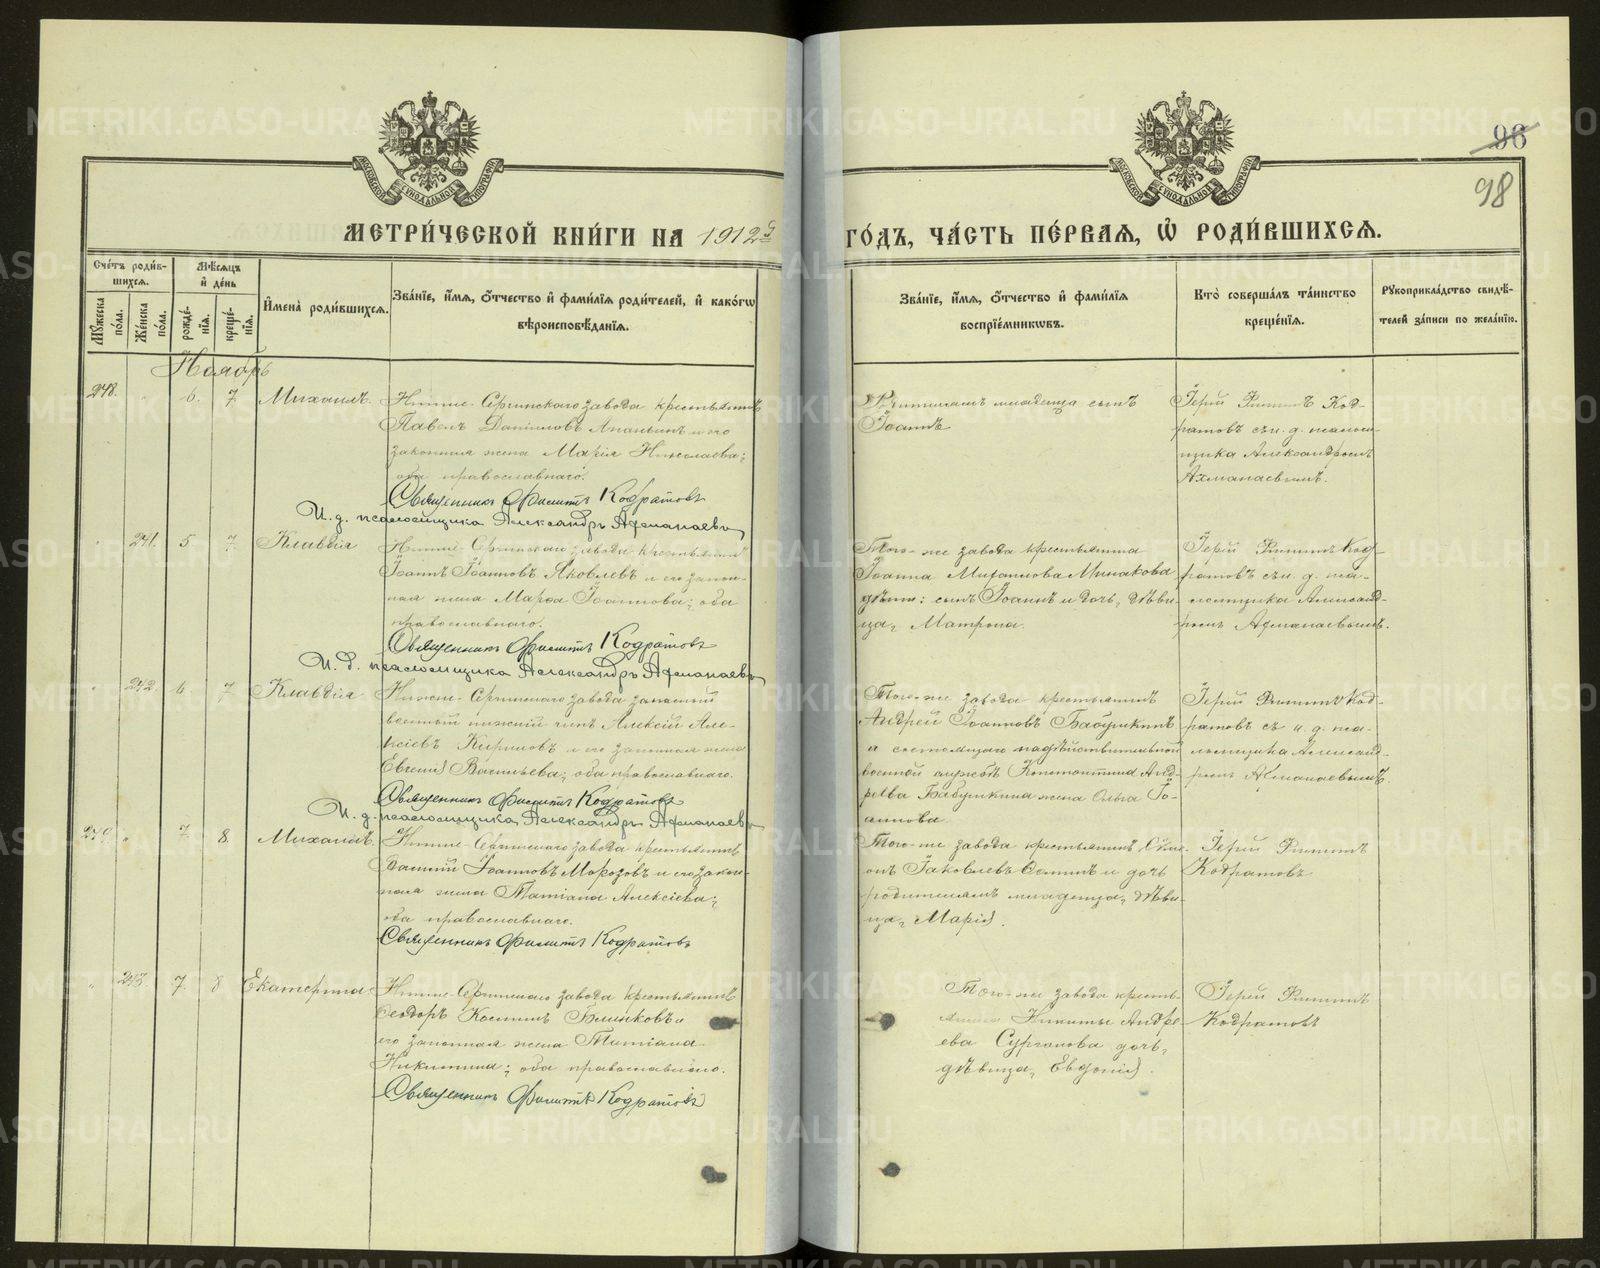 96
98
МЕТРИ́ЧЕСКОЙ КНИ́ГИ НА 1912 ГО́ДЪ, ЧА́СТЬ ПЕ́РВАЯ, Ѡ҆ РОДИ́ВШИХСЯ.
Сче́тъ роди́в-
шихся.
Му́жеска по́ла.
Же́нска по́ла.
Мѣ́сяцъ
и҆ де́нь
рожде́-
нїя.
креще́-
нїя.
И҆мена̀ роди́вшихся.
Зва́нїе, и҆́мя, ѻ҆́тчество и҆ фами́лїя роди́телей, и҆ како́гѡ
вѣроисповѣ́данїя.
Зва́нїе, и҆́мя, ѻ҆́тчество и҆ фами́лїя
воспрїе́мникѡвъ.
Кто̀ соверша́лъ та́инство
креще́нїя.
Рꙋкоприкла́дство свидѣ́-
телей за́писи по жела́нїю.
Ноябрь
248. " 6. 7. Михаилъ.
Нижне-Сергинскаго завода крестьянинъ
Павелъ Даніиловъ Ананьинъ и его
законная жена Марія Николаева;
оба православнаго.
Священникъ Филиппъ Кодратовъ
И. д. псаломщика Александръ Афанасьевъ
Родителямъ младенца сынъ
Іоаннъ
Іерей Филиппъ Код-
ратовъ съ и. д. псалом-
щика Александромъ
" 241. 5 7. Клавдія
Нижне-Сергинскаго завода крестьянинъ
Іоаннъ Іоанновъ Яковлевъ и его закон-
ная жена Марѳа Іоаннова; оба
православнаго.
Священникъ Филиппъ Кодратовъ
И. д. псаломщика Александръ Афанасьевъ
Того-же завода крестьянина
Іоанна Михаилова Минакова
дѣти: сынъ Іоаннъ и дочь, дѣви-
ца, Матрона.
Іерей Филиппъ Код-
ратовъ съ и. д. пса-
ломщика Александ-
ромъ
" 242. 6. 7 Клавдія
Нижне-Сергинскаго завода запасный
военный нижній чинъ Алексій Але-
ксіевъ Кириловъ и его законная жена
Евгенія Васильева; оба православнаго.
Священникъ Филиппъ Кодратовъ
И. д. псаломщика Александръ Афанасьевъ
Того-же завода крестьянинъ
Андрей Іоанновъ Бабушкинъ
и состоящаго на дѣйствительной
военной службѣ Константина Анд-
реева Бабушкина жена Ольга Іо-
аннова.
Іерей Филиппъ Код-
ратовъ съ и. д. пса-
ломщика Александ-
ромъ
249. " 7. 8. Михаилъ.
Нижне-Сергинскаго завода крестьянинъ
Василій Іоанновъ Морозовъ и его закон-
ная жена Татіана Алексіева;
оба православнаго.
Священникъ Филиппъ Кодратовъ
Того-же завода крестьянинъ
Іаковлевъ и дочь
родителямъ младенца, дѣви-
ца, Марія.
Іерей Филиппъ
Кодратовъ
" 243. 7. 8 Екатерина
Нижне-Сергинскаго завода крестьянинъ
Ѳеодоръ и
его законная жена Татіана
Никитина; оба православнаго.
Священникъ Филиппъ Кодратовъ
Того-же завода кресть-
янина Никиты Андре-
ева Сурганова дочь,
дѣвица, Евдокія.
Іерей Филиппъ
Кодратовъ
METRIKI.GASO-URAL.RU